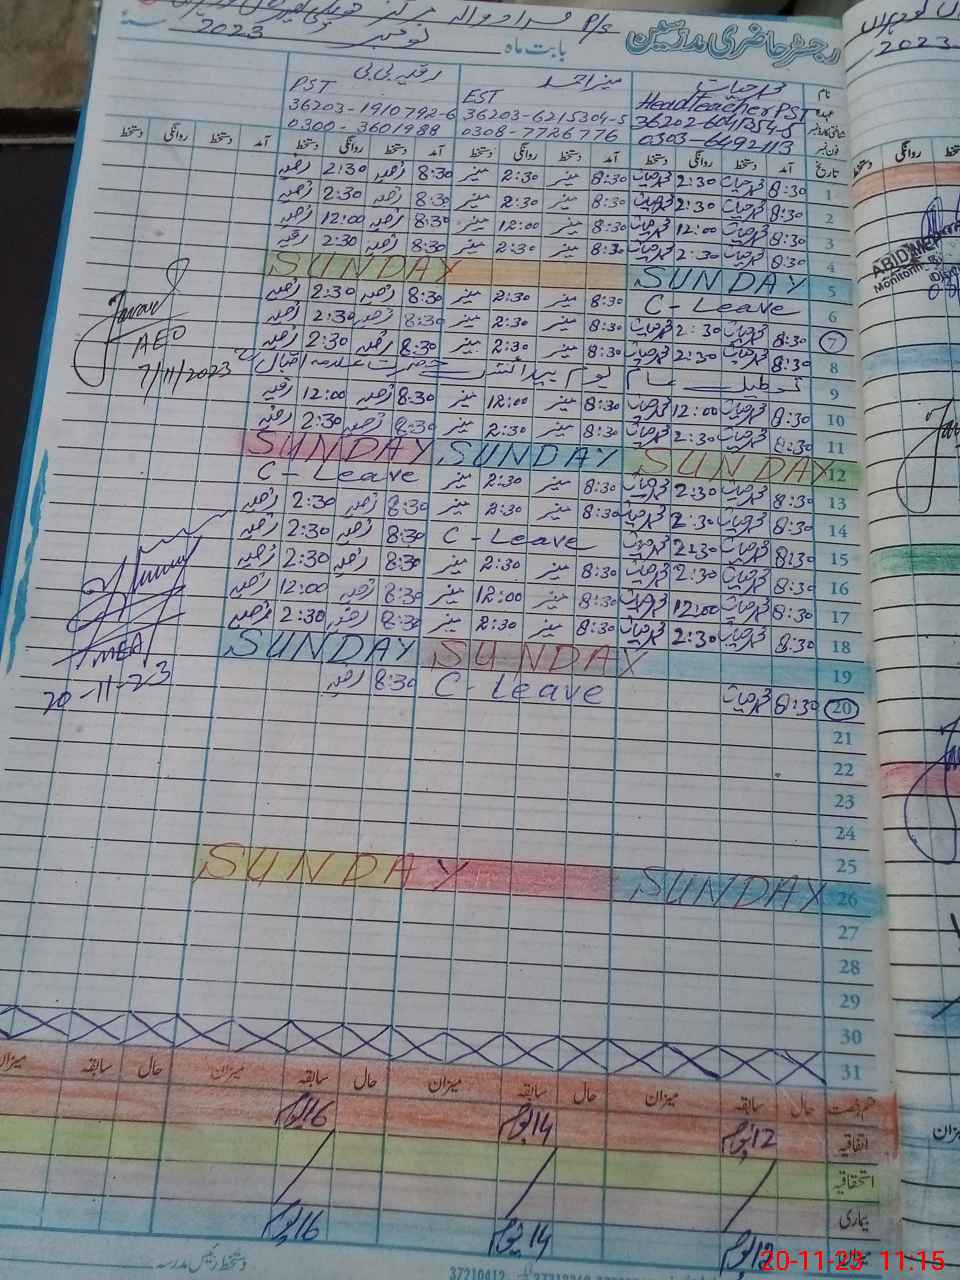 P/s
رجسٹر حاضری مدرسین بابت ماہ نومبر 2023
نام محمد حیات منیر احمد رقیہ بی بی
عہدہ Head Teacher PST EST PST
36202-6041354-5 36203-6215304-5 36203-1910792-6
فون نمبر 0303-6492113 0308-7726776 0300-3601988
تاریخ آمد دستخط روانگی دستخط آمد دستخط روانگی دستخط آمد دستخط روانگی دستخط آمد دستخط روانگی دستخط
1 8:30 محمد حیات 2:30 محمد حیات 8:30 منیر 2:30 منیر 8:30 رقیہ 2:30 رقیہ
2 8:30 محمد حیات 2:30 محمد حیات 8:30 منیر 2:30 منیر 8:30 رقیہ 2:30 رقیہ
3 8:30 محمد حیات 12:00 محمد حیات 8:30 منیر 12:00 منیر 8:30 رقیہ 12:00 رقیہ
4 8:30 محمد حیات 2:30 محمد حیات 8:30 منیر 2:30 منیر 8:30 رقیہ 2:30 رقیہ
5 SUNDAY SUNDAY
6 C-Leave 8:30 منیر 2:30 منیر 8:30 رقیہ 2:30 رقیہ
7 8:30 محمد حیات 2:30 محمد حیات 8:30 منیر 2:30 منیر 8:30 رقیہ 2:30 رقیہ
8 8:30 محمد حیات 2:30 محمد حیات 8:30 منیر 2:30 منیر 8:30 رقیہ 2:30 رقیہ
AEO
7/11/2023
9 تعطیل بسلسلہ یوم پیدائش حضرت علامہ اقبال
10 8:30 محمد حیات 12:00 محمد حیات 8:30 منیر 12:00 منیر 8:30 رقیہ 12:00 رقیہ
11 8:30 محمد حیات 2:30 محمد حیات 8:30 منیر 2:30 منیر 8:30 رقیہ 2:30 رقیہ
12 SUNDAY SUNDAY SUNDAY
13 8:30 محمد حیات 2:30 محمد حیات 8:30 منیر 2:30 منیر C-Leave
14 8:30 محمد حیات 2:30 محمد حیات 8:30 منیر 2:30 منیر 8:30 رقیہ 2:30 رقیہ
15 8:30 محمد حیات 2:30 محمد حیات C-Leave 8:30 رقیہ 2:30 رقیہ
16 8:30 محمد حیات 2:30 محمد حیات 8:30 منیر 2:30 منیر 8:30 رقیہ 2:30 رقیہ
17 8:30 محمد حیات 12:00 محمد حیات 8:30 منیر 12:00 منیر 8:30 رقیہ 12:00 رقیہ
18 8:30 محمد حیات 2:30 محمد حیات 8:30 منیر 2:30 منیر 8:30 رقیہ 2:30 رقیہ
MEA
19 SUNDAY SUNDAY
20-11-23
20 8:30 محمد حیات C-Leave 8:30 رقیہ
21
22
23
24
25
26 SUNDAY SUNDAY
27
28
29
30
31
قسم رخصت حال سابقہ میزان حال سابقہ میزان حال سابقہ میزان حال سابقہ میزان
اتفاقیہ 12 یوم 14 یوم 16 یوم
استحقاقیہ
بیماری
میزان 12 یوم 14 یوم 16 یوم
دستخط رئیس مدرسہ
37210412
2023
میزان
20-11-23 11:15